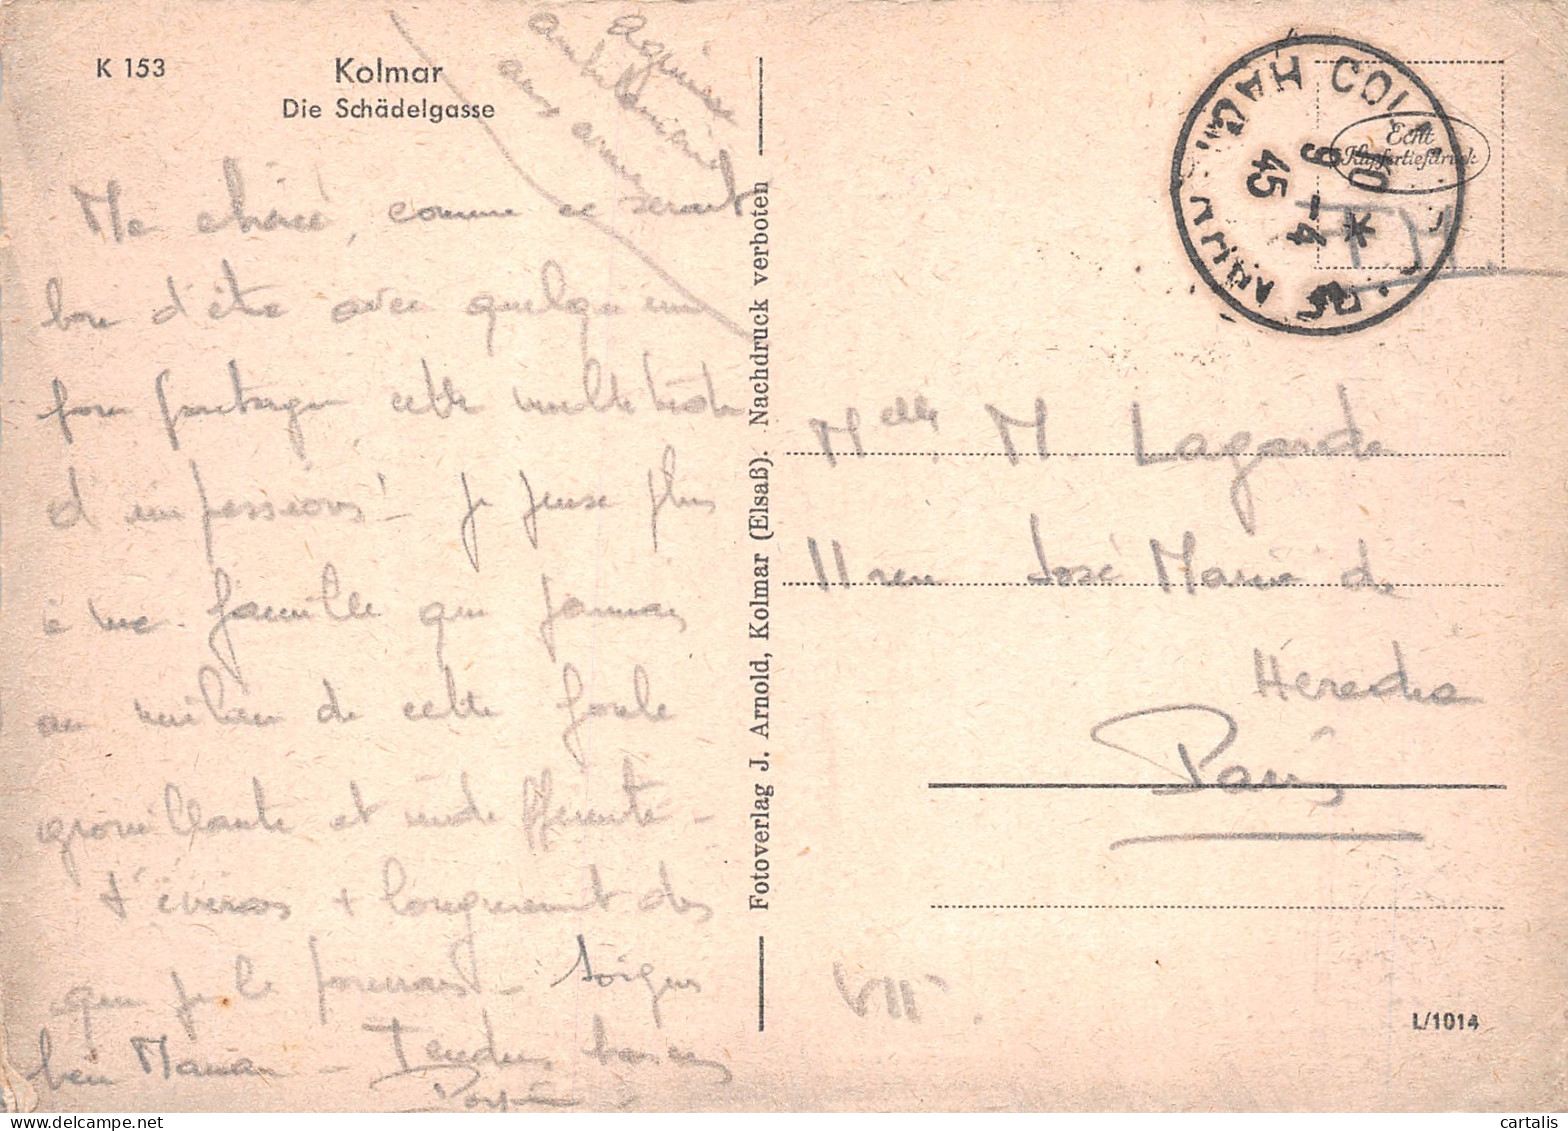 K 153
Kolmar
Die Schädelgasse
Ma chérie, comme ce serait
bon d'être avec quelqu'un
pour partager cette multitude
d'impressions! Je pense plus
à ma famille que jamais
au milieu de cette foule
grouillante et indifférente -
t'écrirai + longuement dès
que je le pourrai - Soigne
bien Maman - Tendres baisers
Fotoverlag J. Arnold, Kolmar (Elsaß). Nachdruck verboten
COLMAR
HAUT-RHIN
9 -4
45
Echt
Kupfertiefdruck
F.M.
Melle M. Lagarde
11 rue José Maria de
Heredia
Paris
VII
L/1014
cartalis